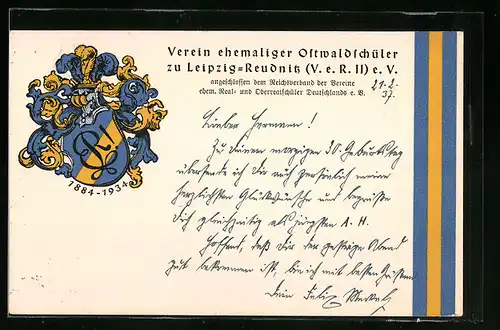 Verein ehemaliger Ostwaldschüler
zu Leipzig=Reudnitz (V. e. R. II) e. V.
angeschlossen dem Reichsverband der Vereine
ehem. Real- und Oberrealschüler Deutschlands e. V.
21.2.
37.
1884-1934
Lieber Hermann!
Zu Deinem morgigen 30. Geburtstag
übersende ich Dir auch persönlich meine
herzlichsten Glückwünsche und begrüße
Dich gleichzeitig als jüngsten A. H.
Hoffend, daß Dir der gestrige Abend
gut bekommen ist, bin ich mit besten Grüßen
Dein Felix